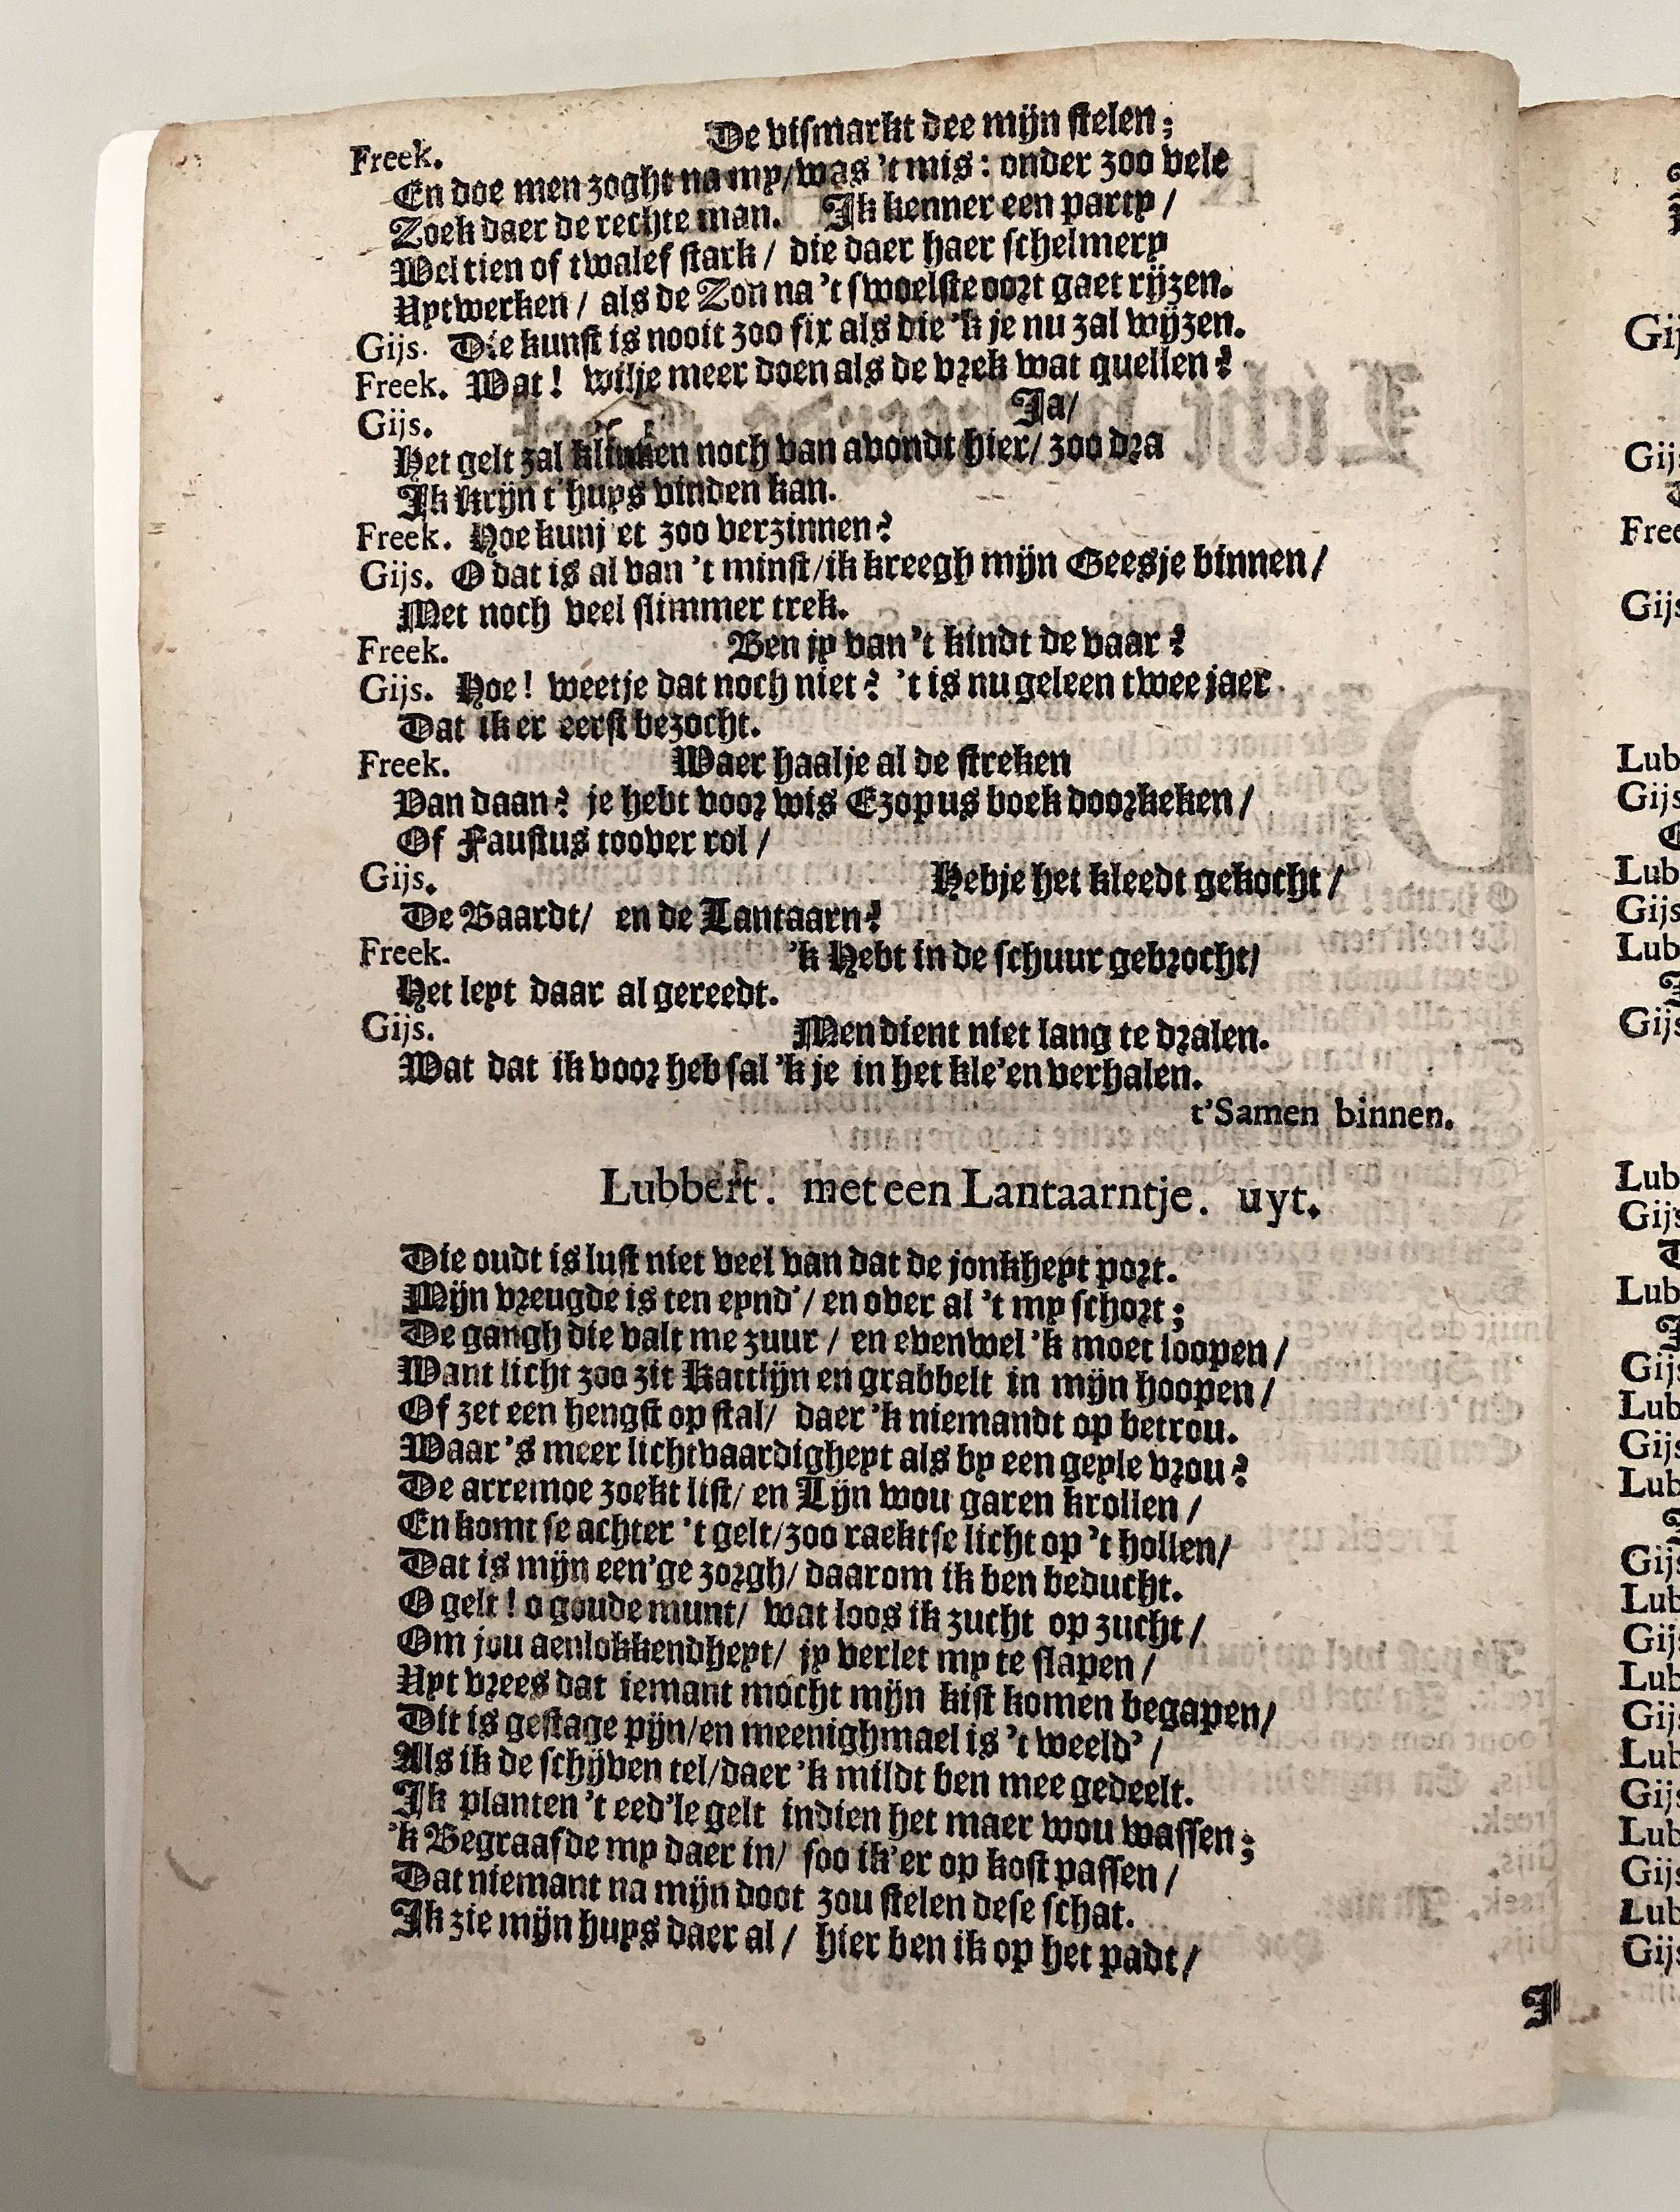 Freek. De vismarkt dee mijn stelen;
En doe men zoght na my/was 't mis: onder zoo vele
Zoek daer de rechte man. Ik kenner een party/
Wel tien of twalef stark/ die daer haer schelmery
Uytwerken/ als de Zon na 't swoelste oort gaet rijzen.
Gijs. Die kunst is nooit zoo fix als die 'k je nu zal wijzen.
Freek. Wat! wilje meer doen als de vrek wat quellen?
Gijs. Ja/
Het gelt zal klinken noch van avondt hier/ zoo dra
Ik krijn t'huys vinden kan.
Freek. Hoe kunj'et zoo verzinnen?
Gijs. O dat is al van 't minst/ik kreegh mijn Geesje binnen/
Met noch veel slimmer trek.
Freek. Ben jy van 't kindt de vaar?
Gijs. Hoe! weetje dat noch niet? 't is nu geleen twee jaer
Dat ik er eerst bezocht.
Freek. Waer haalje al de streken
Van daan? je hebt voor wis Ezopus boek doorkeken/
Of Faustus toover rol/
Gijs. Hebje het kleedt gekocht/
De Baardt/ en de Lantaarn?
Freek. 'k Hebt in de schuur gebrocht/
Het leyt daar al gereedt.
Gijs. Men dient niet lang te dralen.
Wat dat ik voor heb sal 'k je in het kle'en verhalen.
t'Samen binnen.
Lubbert. met een Lantaarntje. uyt.
Die oudt is lust niet veel van dat de jonkheyt port.
Mijn vreugde is ten eynd'/ en over al 't my schort;
De gangh die valt me zuur/ en evenwel 'k moet loopen/
Want licht zoo zit Kattlijn en grabbelt in mijn hoopen/
Of zet een hengst op stal/ daer 'k niemandt op betrou.
Waar's meer lichtvaardigheyt als by een geyle vrou?
De arremoe zoekt list/ en Lijn wou garen krollen/
En komt se achter 't gelt/zoo raektse licht op 't hollen/
Dat is mijn een'ge zorgh/ daarom ik ben beducht.
O gelt! o goude munt/ wat loos ik zucht op zucht/
Om jou aenlokkendheyt/ jy verlet my te slapen/
Uyt vrees dat iemant mocht mijn kist komen begapen/
Dit is gestage pijn/en meenighmael is 't weeld'/
Als ik de schijven tel/daer 'k mildt ben mee gedeelt.
Ik planten 't eed'le gelt indien het maer wou wassen;
'k Begraafde my daer in/ soo ik'er op kost passen/
Dat niemant na mijn doot zou stelen dese schat.
Ik zie mijn huys daer al/ hier ben ik op het padt/